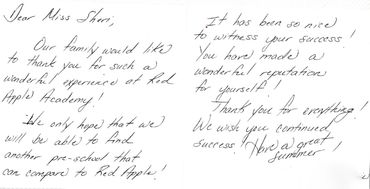 Dear Miss Sheri,
Our family would like
to thank you for such a
wonderful experience at Red
Apple Academy!
We only hope that we
will be able to find
another pre-school that
can compare to Red Apple!
It has been so nice
to witness your success!
You have made a
wonderful reputation
for yourself!
Thank you for everything!
We wish you continued
success! Have a great
summer!